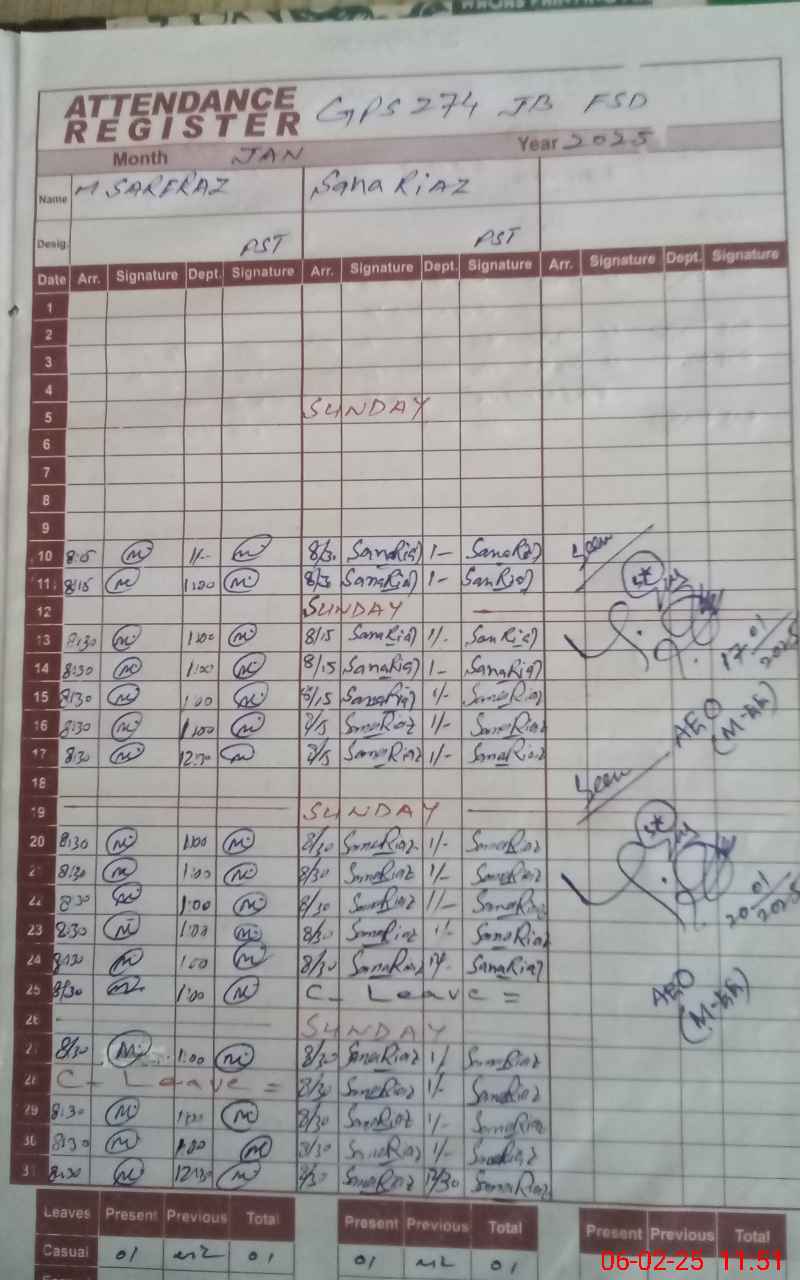 ATTENDANCE REGISTER GPS 274 JB FSD
Month JAN Year 2025
Name M SARFRAZ Sana Riaz
Desig. PST PST
Date Arr. Signature Dept. Signature Arr. Signature Dept. Signature Arr. Signature Dept. Signature
1
2
3
4
5 SUNDAY
6
7
8
9
10 8:15 M 1/- M 8/3. SanaRiaz 1- SanaRiaz Seen
11 8:15 M 1:00 M 8/3 SanaRiaz 1- SanRiaz
12 SUNDAY
13 8:30 M 1:00 M 8/15 SanaRiaz 1/- SanRiaz 17 01/2025
14 8:30 M 1:00 M 8/15 SanaRiaz 1- SanaRiaz
15 8:30 M 1:00 M 8/15 SanaRiaz 1/- SanaRiaz
16 8:30 M 1:00 M 8/15 SanaRiaz 1/- SanaRiaz AEO
17 8:30 M 12:30 M 8/15 SanaRiaz 1/- SanaRiaz
18 Seen
19 SUNDAY
20 8:30 M 1:00 M 8/30 SanaRiaz 1/- SanaRiaz
21 8:30 M 1:00 M 8/30 SanaRiaz 1/- SanaRiaz
22 8:30 M 1:00 M 8/30 SanaRiaz 1/- SanaRiaz 20 01/2025
23 8:30 M 1:00 M 8/30 SanaRiaz 1/- SanaRiaz
24 8:30 M 1:00 M 8/30 SanaRiaz 1/- SanaRiaz
25 8/30 M 1:00 M C- Leave = AEO
26 SUNDAY
27 8/30 M 1:00 M 8/30 SanaRiaz 1/ SanaRiaz
28 C- Leave = 8/30 SanaRiaz 1/- SanaRiaz
29 8:30 M 1:00 M 8/30 SanaRiaz 1/- SanaRiaz
30 8:30 M 1:00 M 8/30 SanaRiaz 1/- SanaRiaz
31 8:30 M 12:30 M 8/30 SanaRiaz 12/30 SanaRiaz
Leaves Present Previous Total Present Previous Total Present Previous Total
Casual 01 NIL 01 01 NIL 01
06-02-25 11.51